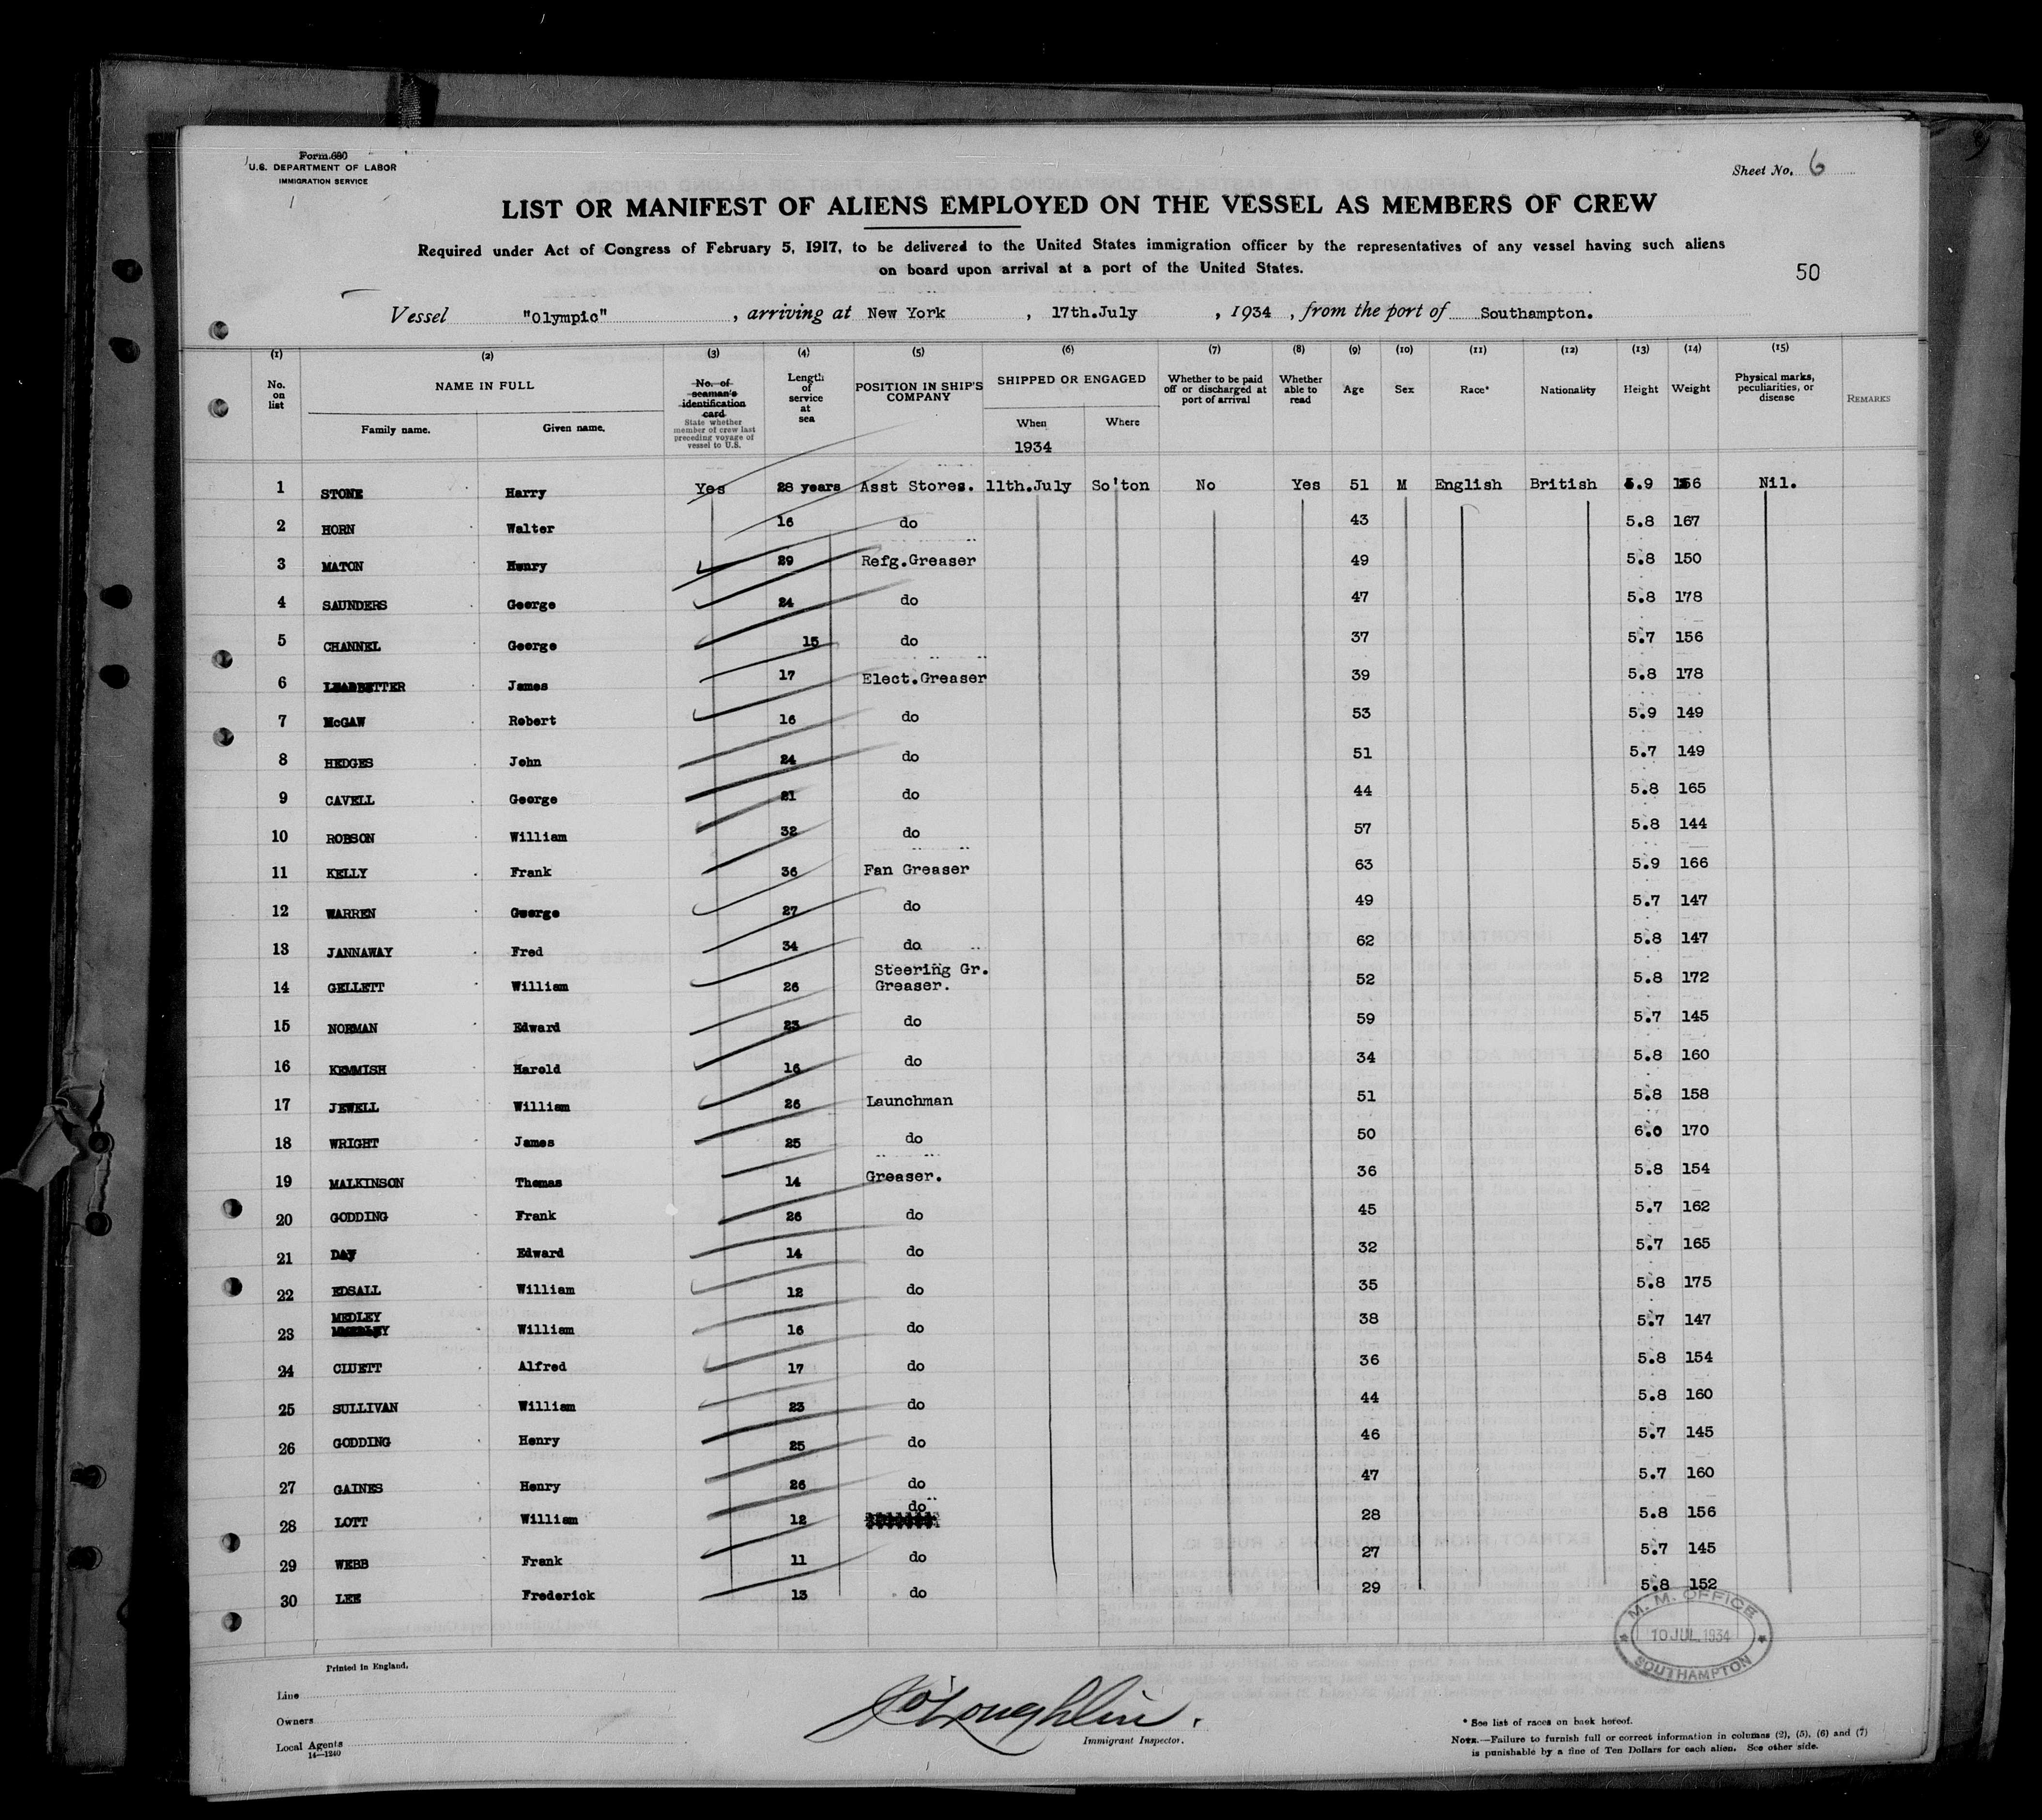 Form 680
U.S. DEPARTMENT OF LABOR
IMMIGRATION SERVICE
Sheet No. 6
LIST OR MANIFEST OF ALIENS EMPLOYED ON THE VESSEL AS MEMBERS OF CREW
Required under Act of Congress of February 5, 1917, to be delivered to the United States immigration officer by the representatives of any vessel having such aliens
on board upon arrival at a port of the United States.
50
Vessel "Olympic", arriving at New York, 17th.July, 1934, from the port of Southampton.
(1) (2) (3) (4) (5) (6) (7) (8) (9) (10) (11) (12) (13) (14) (15)
No. on list NAME IN FULL Family name. Given name. No. of seaman's identification card State whether member of crew last preceding voyage of vessel to U.S. Length of service at sea POSITION IN SHIP'S COMPANY SHIPPED OR ENGAGED When 1934 Where Whether to be paid off or discharged at port of arrival Whether able to read Age Sex Race* Nationality Height Weight Physical marks, peculiarities, or disease REMARKS
1 STONE Harry Yes 28 years Asst Stores. 11th.July So'ton No Yes 51 M English British 5.9 156 Nil.
2 HORN Walter 16 do 43 5.8 167
3 MATON Henry 29 Refg.Greaser 49 5.8 150
4 SAUNDERS George 24 do 47 5.8 178
5 CHANNEL George 15 do 37 5.7 156
6 LEADBETTER James 17 Elect.Greaser 39 5.8 178
7 McGAW Robert 16 do 53 5.9 149
8 HEDGES John 24 do 51 5.7 149
9 CAVELL George 21 do 44 5.8 165
10 ROBSON William 32 do 57 5.8 144
11 KELLY Frank 36 Fan Greaser 63 5.9 166
12 WARREN George 27 do 49 5.7 147
13 JANNAWAY Fred 34 do 62 5.8 147
14 GELLETT William 26 Steering Gr. Greaser. 52 5.8 172
15 NORMAN Edward 23 do 59 5.7 145
16 KEMMISH Harold 16 do 34 5.8 160
17 JEWELL William 26 Launchman 51 5.8 158
18 WRIGHT James 25 do 50 6.0 170
19 MALKINSON Thomas 14 Greaser. 36 5.8 154
20 GODDING Frank 26 do 45 5.7 162
21 DAY Edward 14 do 32 5.7 165
22 EDSALL William 12 do 35 5.8 175
23 MEDLEY William 16 do 38 5.7 147
24 CLUETT Alfred 17 do 36 5.8 154
25 SULLIVAN William 23 do 44 5.8 160
26 GODDING Henry 25 do 46 5.7 145
27 GAINES Henry 26 do 47 5.7 160
28 LOTT William 12 do 28 5.8 156
29 WEBB Frank 11 do 27 5.7 145
30 LEE Frederick 13 do 29 5.8 152
M.M. OFFICE
10 JUL 1934
SOUTHAMPTON
Printed in England.
Line
Owners
Local Agents
14—1240
J O'Loughlin.
Immigrant Inspector.
* See list of races on back hereof.
NOTE.—Failure to furnish full or correct information in columns (2), (5), (6) and (7)
is punishable by a fine of Ten Dollars for each alien. See other side.